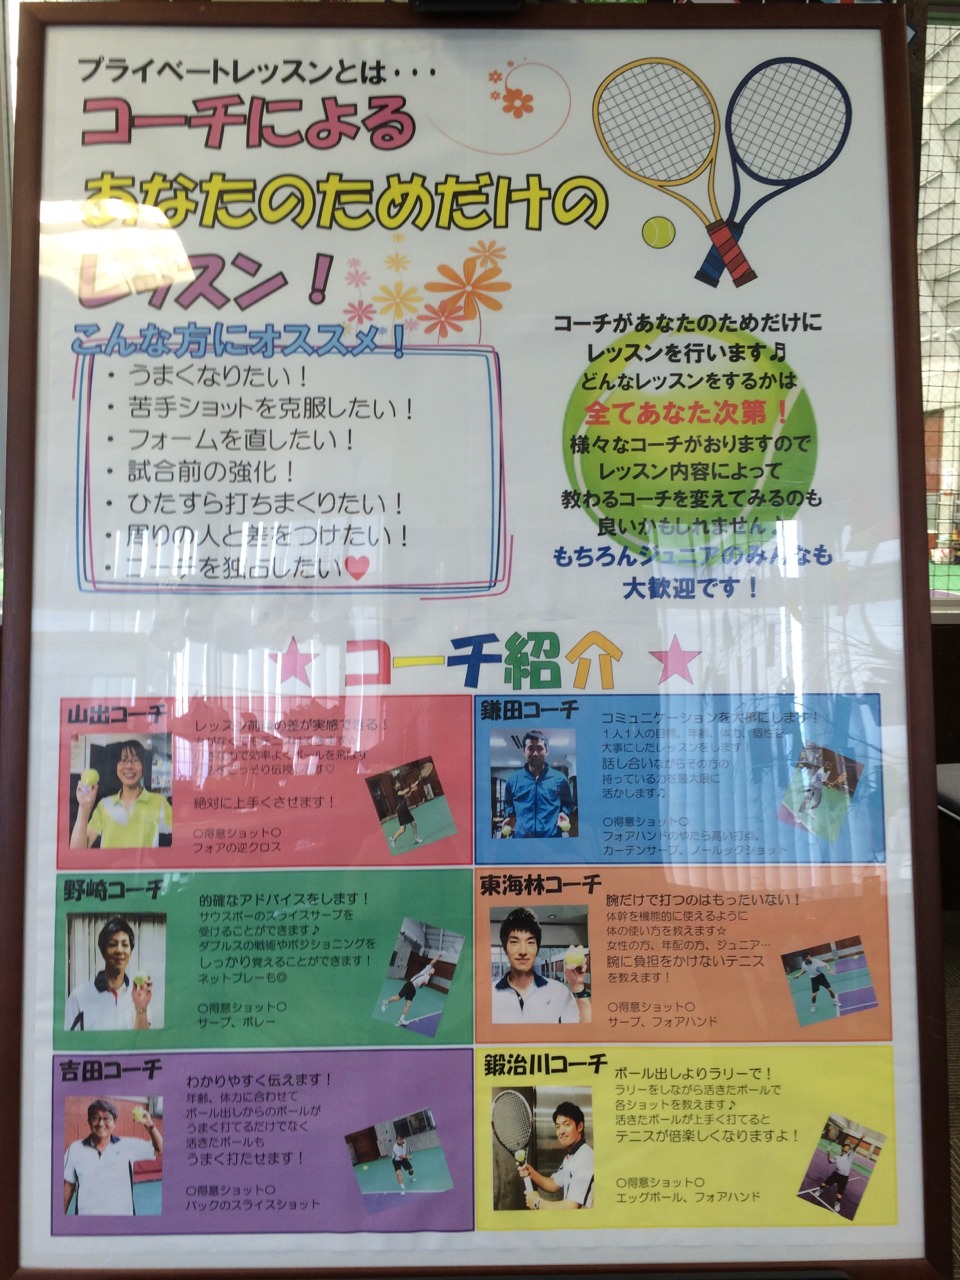 プライベートレッスンとは・・・
コーチによる
あなたのためだけの
レッスン！
こんな方にオススメ！
・うまくなりたい！
・苦手ショットを克服したい！
・フォームを直したい！
・試合前の強化！
・ひたすら打ちまくりたい！
・周りの人と差をつけたい！
・コーチを独占したい♥
コーチがあなたのためだけに
レッスンを行います♫
どんなレッスンをするかは
全てあなた次第！
様々なコーチがおりますので
レッスン内容によって
教わるコーチを変えてみるのも
良いかもしれません♪
もちろんジュニアのみんなも
大歓迎です！
★コーチ紹介★
山出コーチ
レッスン前後の差が実感できる！
絶対に上手くさせます！
○得意ショット○
フォアの逆クロス
鎌田コーチ
コミュニケーションを大事にします！
1人1人の目標、年齢、体力、個性を
大事にしたレッスンをします！
話し合いながらその方の
持っている力を最大限に
活かします♫
○得意ショット○
フォアハンドのやたら高い打点、
カーテンサーブ、ノールックショット
野崎コーチ
的確なアドバイスをします！
サウスポーのスライスサーブを
受けることができます♪
ダブルスの戦術やポジショニングを
しっかり覚えることができます！
ネットプレーも◎
○得意ショット○
サーブ、ボレー
東海林コーチ
腕だけで打つのはもったいない！
体幹を機能的に使えるように
体の使い方を教えます☆
女性の方、年配の方、ジュニア…
腕に負担をかけないテニス
を教えます！
○得意ショット○
サーブ、フォアハンド
吉田コーチ
わかりやすく伝えます！
年齢、体力に合わせて
ボール出しからのボールが
うまく打てるだけでなく
活きたボールも
うまく打たせます！
○得意ショット○
バックのスライスショット
鍛治川コーチ
ボール出しよりラリーで！
ラリーをしながら活きたボールで
各ショットを教えます♪
活きたボールが上手く打てると
テニスが倍楽しくなりますよ！
○得意ショット○
エッグボール、フォアハンド